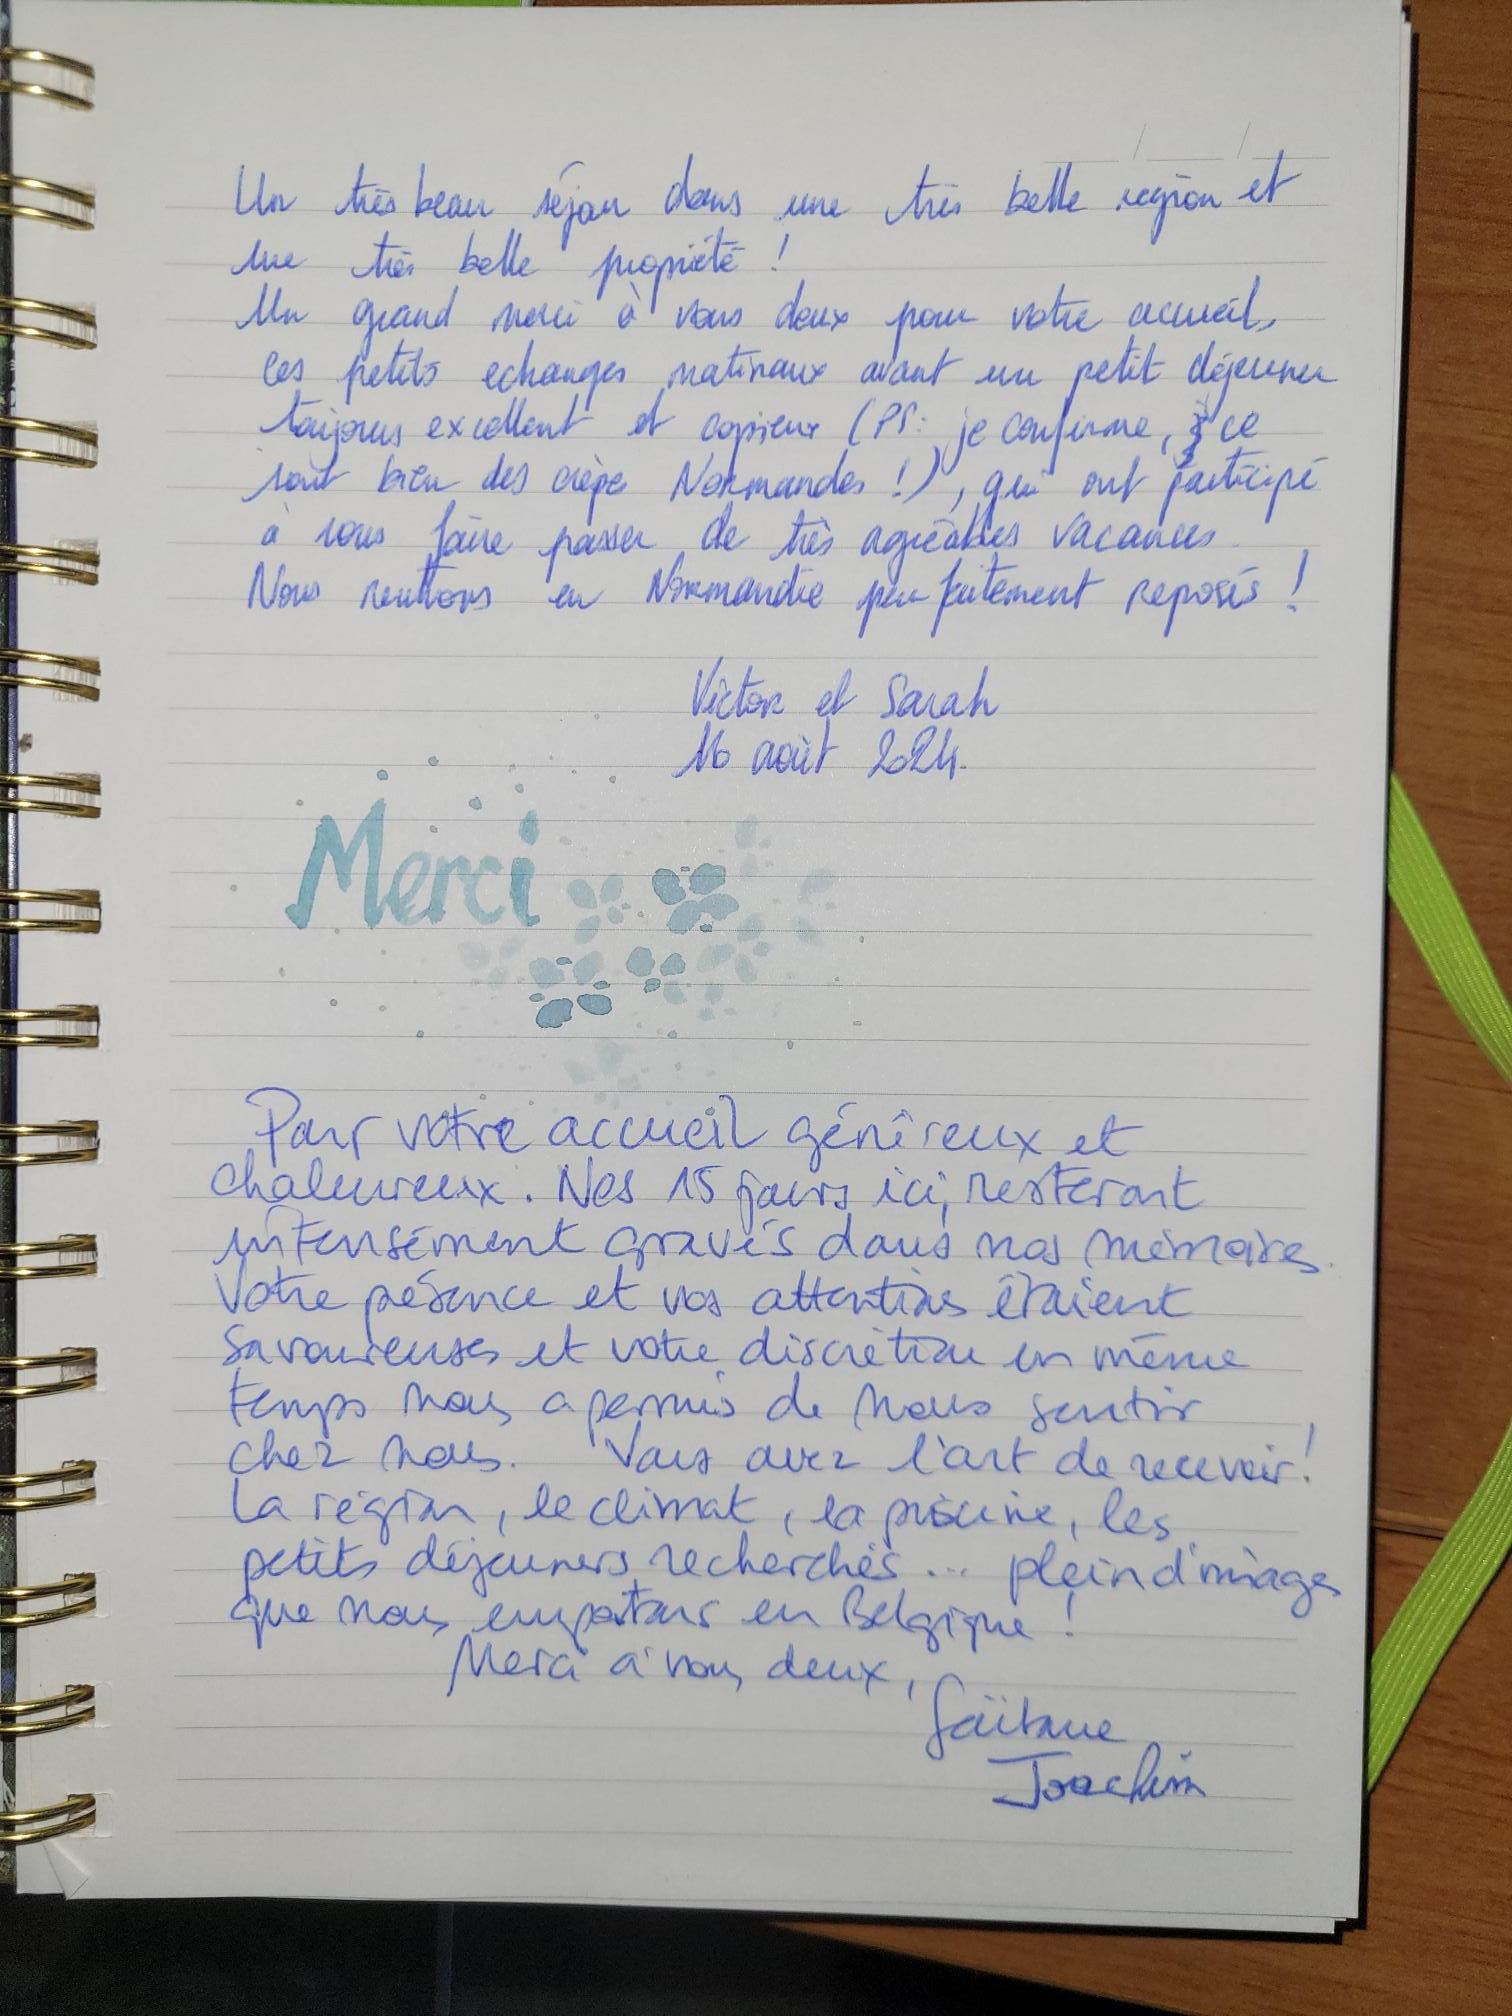 Un très beau séjour dans une très belle région et
une très belle propriété !
Un grand merci à vous deux pour votre accueil,
ces petits echanges matinaux avant un petit déjeuner
toujours excellent et copieux (PS: je confirme, ce
sont bien des crêpes Normandes !), qui ont participé
à nous faire passer de très agréables vacances.
Nous rentrons en Normandie parfaitement reposés !
Victor et Sarah
16 août 2024.
Merci
Pour votre accueil généreux et
chaleureux. Nos 15 jours ici, resteront
intensément gravés dans nos mémoires.
Votre présence et vos attentions étaient
savoureuses et votre discrétion en même
temps nous a permis de nous sentir
chez nous. Vous avez l'art de recevoir !
La région, le climat, la piscine, les
petits déjeuners recherchés... plein d'images
que nous emportons en Belgique !
Merci à vous deux,
Gaïtane
Joachim